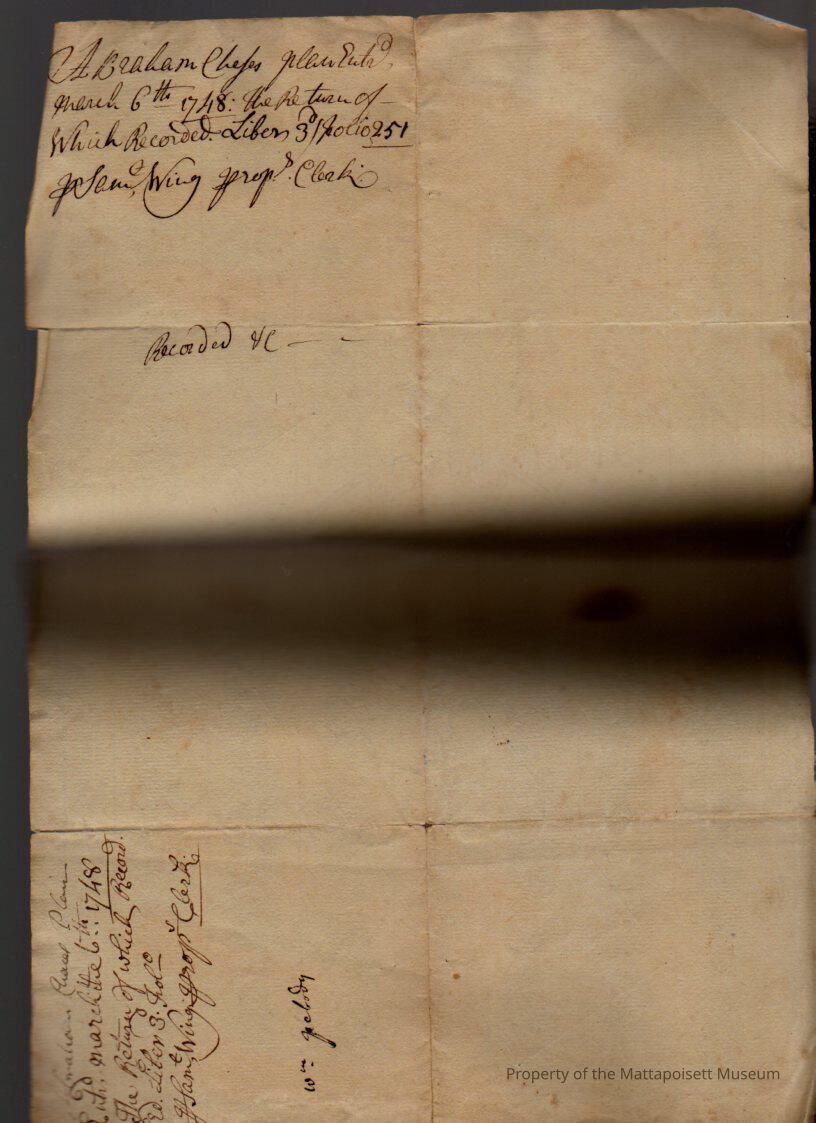 Abraham Chases plan Entrd
march 6th 1748: the Return of
Which Recorded. Liber 3d/folio 251
pr Samll Wing props. Clerk
Recorded &C
Chases Plan
march the 6th: 1748
The Return of which Record
ed. Liber 3. folo
pr Saml Wing props Clerk
wm pebody
Property of the Mattapoisett Museum